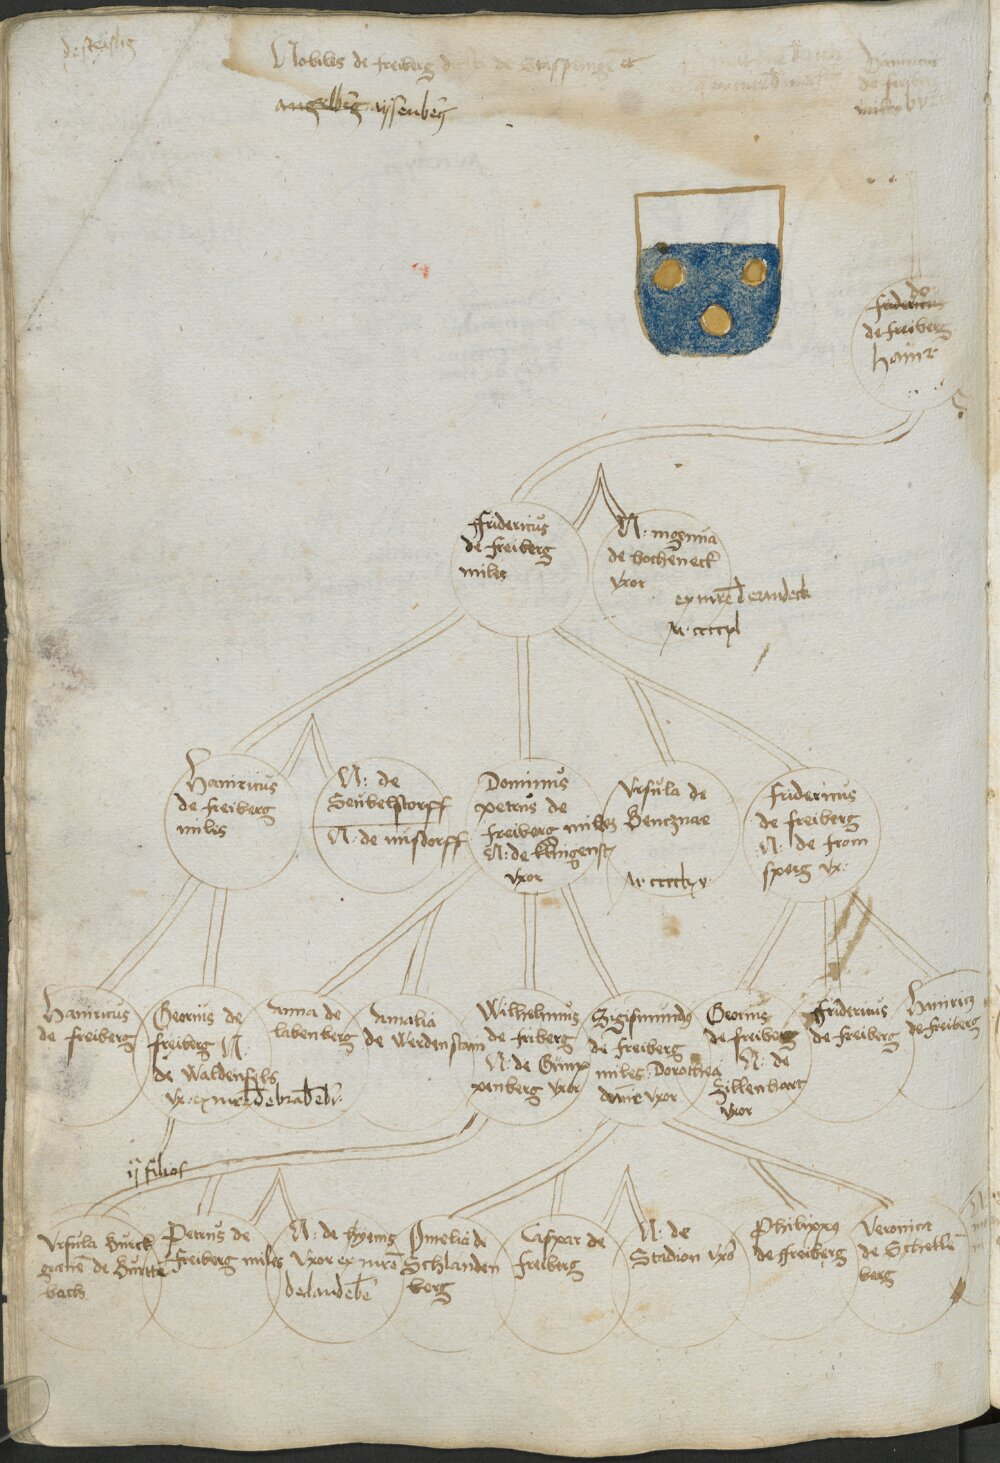 Nobiles de freiberg dicti de et
angelberg Eyssenberg
Hainricus
de freiberg
miles
fridericus
de freiberg
hainr
ffridericus
de freiberg
miles
N. ingenua
de hocheneck
vxor
M cccc xl
Hainricus
de freiberg
miles
N: de
Seubelstorff
N: de nusdorff
Dominus
petrus de
freiberg miles
N: de klingenst
vxor
Vrsula de
Bencznaw
fridericus
de freiberg
N. de fron
sperg vx.
Hainricus
de freiberg
Georius de
freiberg N.
de Waldenfels
anna de
labenberg
Amalia
de Werdenstain
Wilhelmus
de friberg
N: de Gump
penberg vxor
Sigismundus
de freiberg
miles Dorothea
vxor
Georius
de freiberg
N: de
Sillenhart
vxor
ffridericus
de freiberg
Hainricus
de freiberg
ij filios
Vrsula
de Burtten
bach
Petrus de
freiberg miles
N: de
vxor ex
Amelia de
Schlanden
berg
Caspar de
freiberg
N: de
Stadion vxor
Philippus
de ffreiberg
Veronica
de Schellen
berg